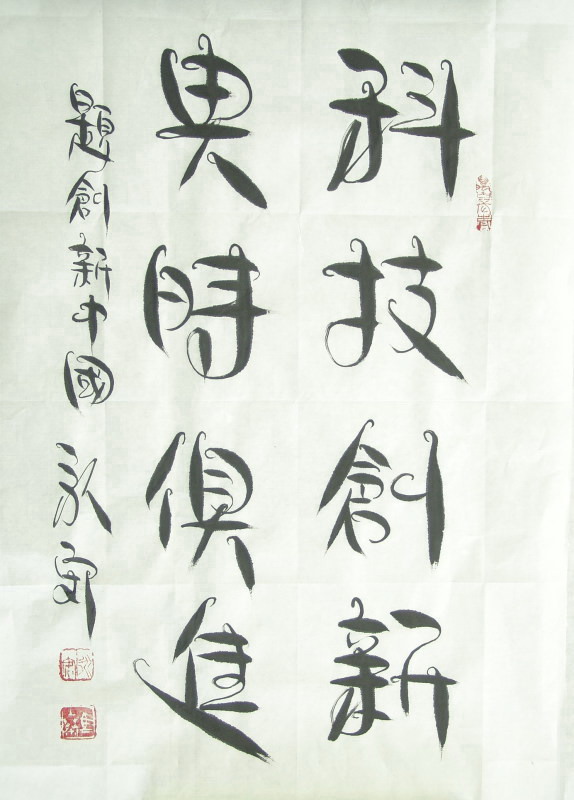 科技創新
與時俱進
題創新中國